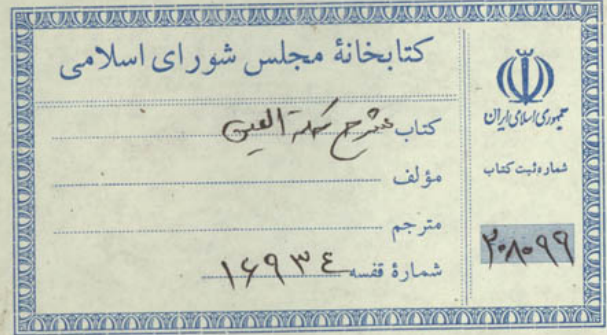 کتابخانهٔ مجلس شورای اسلامی
کتاب شرح حکمة العین
مؤلف
مترجم
شمارهٔ قفسه ۱۶۹۳٤
جمهوری اسلامی ایران
شماره ثبت کتاب
۲۰۸۰۹۹